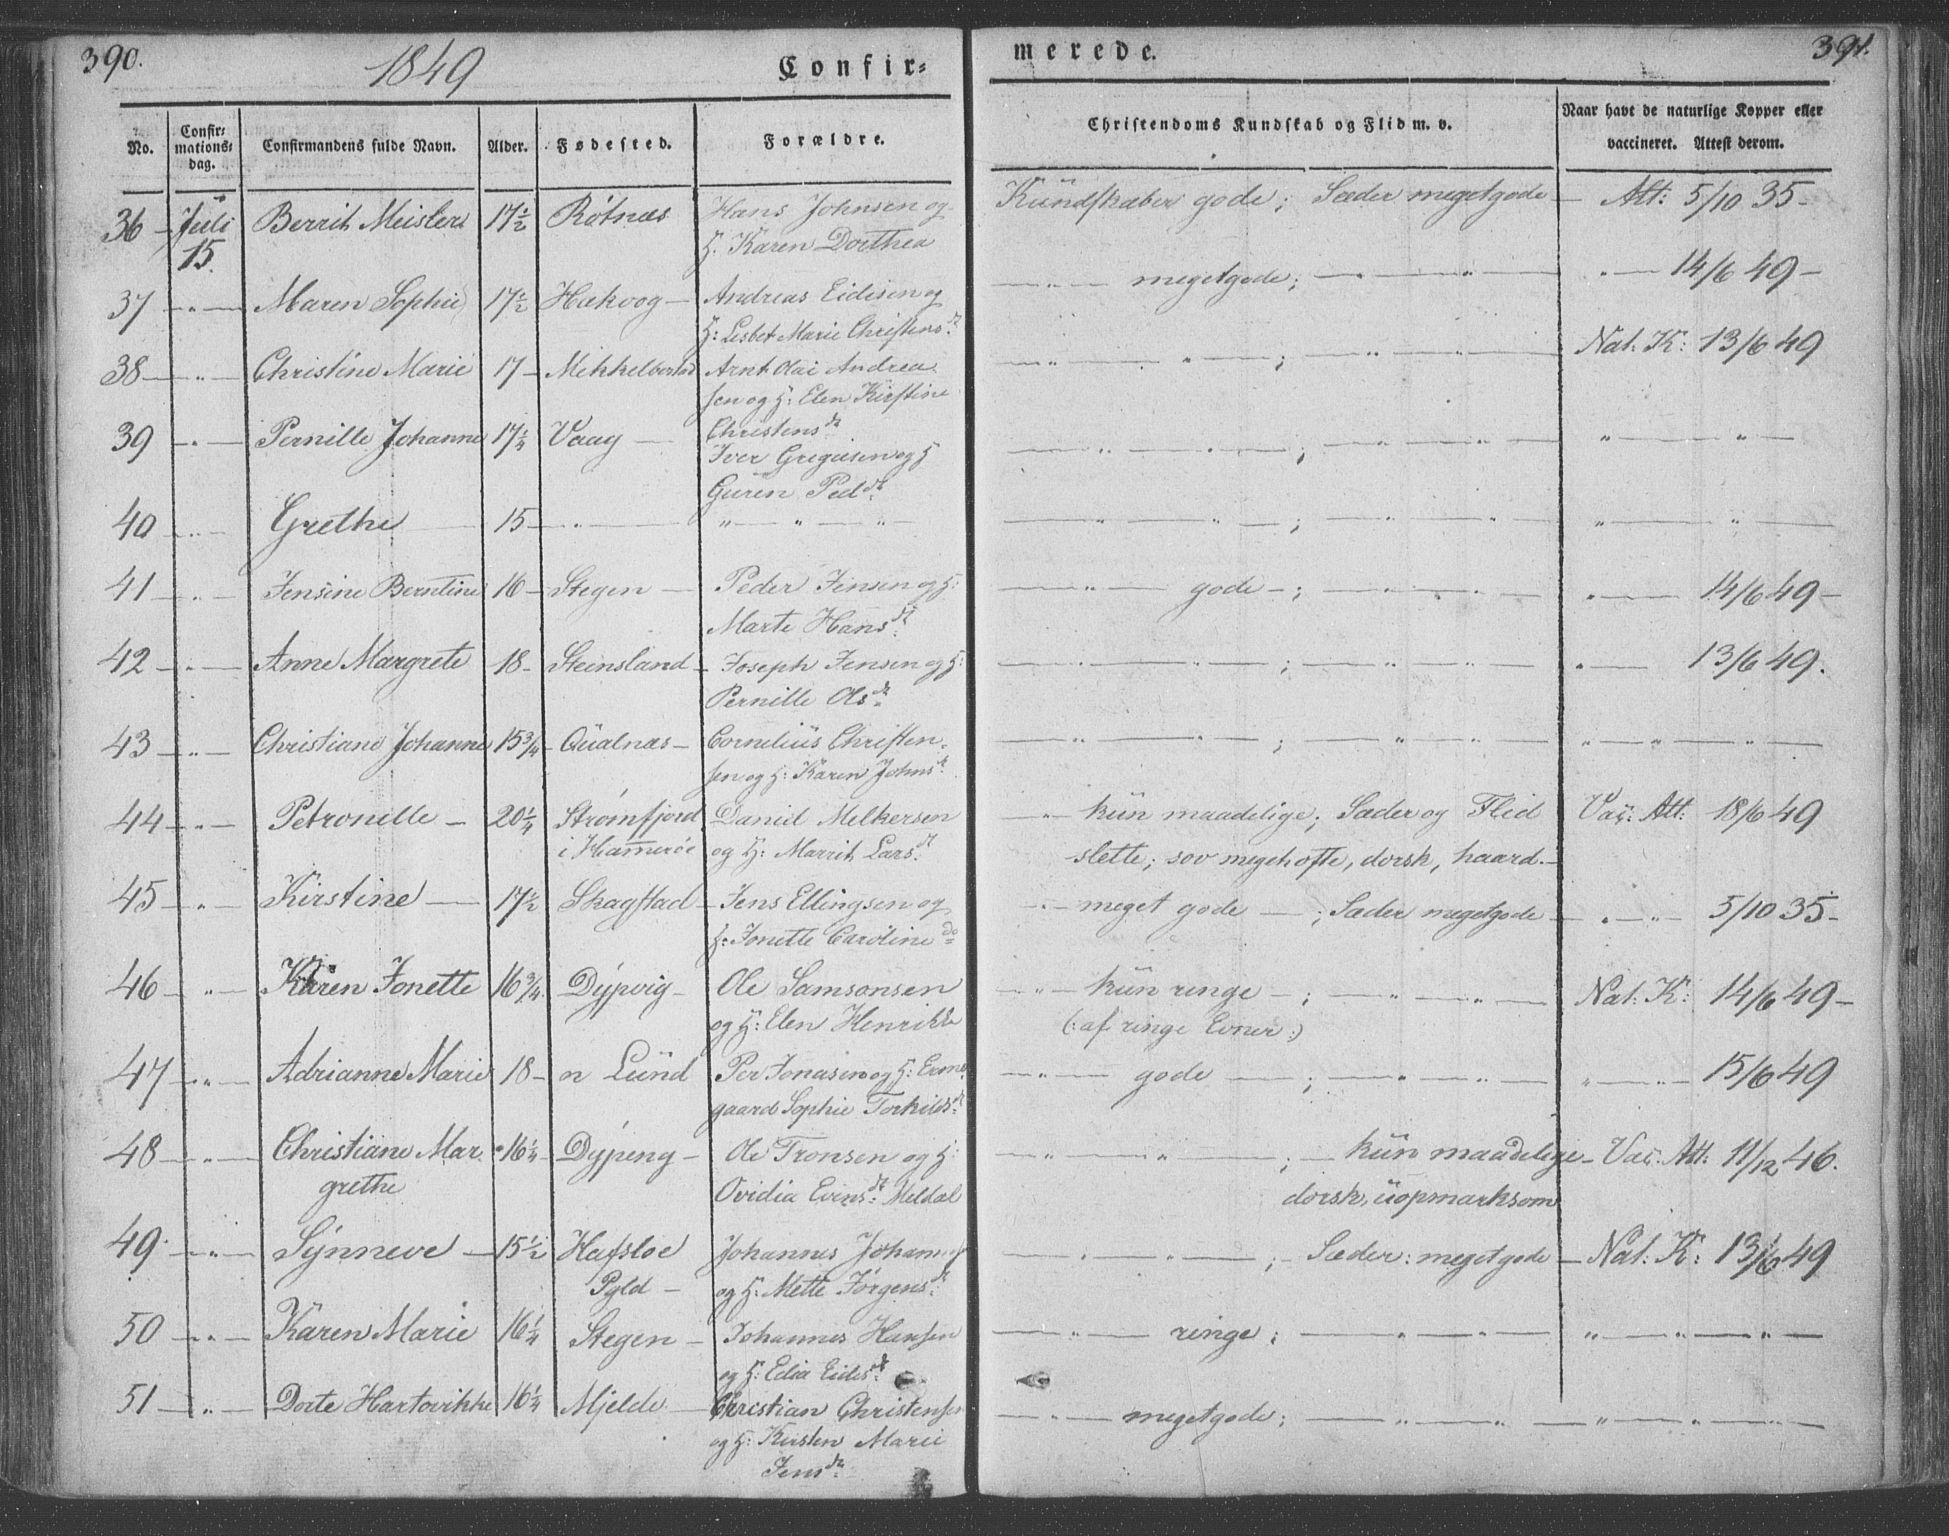 390.
1849
Confir=
merede.
391.
No.
Confir=
mations=
dag.
Confirmandens fulde Navn.
Alder.
Fødested.
Forældre.
Christendoms Kundskab og Flid m. v.
Naar havt de naturlige Kopper eller
vaccineret. Attest derom.
36 — Juli Berrit 17½ Røtnæs Hans Johnsen og Kundskaber gode; Sæder megetgode — Att: 5/10 35 –
15. H. Karen Dorthea
37 — " — Maren Sophie 17½ Andreas Eidisen og — " — megetgode; — " — " — 14/6 49 –
H: Lisbet Marie Christens.dr
38 — " — Christine Marie 17 – Arnt Olai Andrea — " — " — ; — " — " — Nat: K: 13/6 49
sen og H: Elen Kirstine
39 — " — Pernille Johanne 17¼ Vaag — Christens.dr — " — " — ; — " — " — " — " —
Iver Gregusen og H
Guren Ped.dr
40 — " — Grethe 15 — " — " — " — " — " — " — ; — " — " — " — " —
41 — " — Jensine Berntine 16 – Stegen — Peder Jensen og H: — " — gode – ; — " — " — " — 14/6 49 –
Marte Hans.dr
42 — " — Anne Margrete 18 – Steensland – Joseph Jensen og H: — " — " — ; — " — " — " — 13/6 49.
Pernille Ols.dr
43 — " — Christiane Johanne 15¾ – Qualnæs – Cornelius Christen= — " — " — ; — " — " — " — " — " —
sen og H: Karen Johns.dr
44 — " — Petronelle – 20¼ Strømfjord Daniel Melkersen — " — kun maadelige; Sæder og Flid Vac: Att: 18/6 49
i Hamerøe og H: Marrit Lars.dr slette; sov meget ofte, dorsk, haard. –
45 — " — Kirstine — 17½ Skagstad – Jens Ellingsen og — " — meget gode — ; Sæder megetgode – " — " — 5/10 35 –
H: Jonette Caroline do
46 — " — Karen Jonette 16¾ Dypvig – Ole Samsonsen — " — kun ringe – ; — " — " — Nat: K: 14/6 49 –
og H: Elen Henrikke (: af ringe Evner :)
47 — " — Adrianne Marie 18 – Lund Per Jonasen og H: Erme — " — gode — ; — " — " — " — " — 15/6 49
gaard Sophie Torkilds.dr
48 — " — Christiane Mar 16¼ Dypeng – Ole Tronsen og H: — " — " — ; — kun maadelige – Vac: Att: 11/12 46.
grethe Ovidia Evens.dr Meldal dorsk, uopmærksom
49 — " — Synneve — 15½ Hafsloe Johannes — " — " — ; – Sæder: megetgode — Nat: K: 13/6 49
og H: Mette Jørgens.dr
50 — " — Karen Marie 16¼ Stegen – Johannes Hansen — " — ringe; — " — " — " — " — " —
og H: Edia Eides.dr
51 — " — Dorte Hartvikke 16¼ Mjelde — Christian Christensen — " — megetgode; — " — " — " — " — " —
og H: Kirsten Marie
Jens.dr